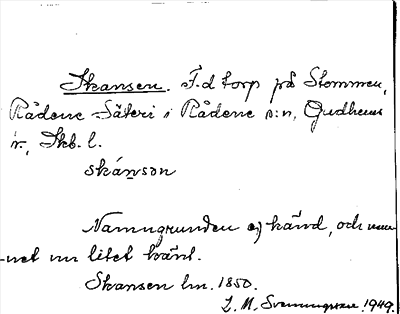 Skansen. F.d torp på Stommen,
Rådene Säteri i Rådene s:n, Gudhems
hr., Skb. l.
skánsɘn
Namngrunden ej känd, och nam-
-net nu litet känt.
Skansen lm. 1850.
L. M. Svenungsson. 1949.